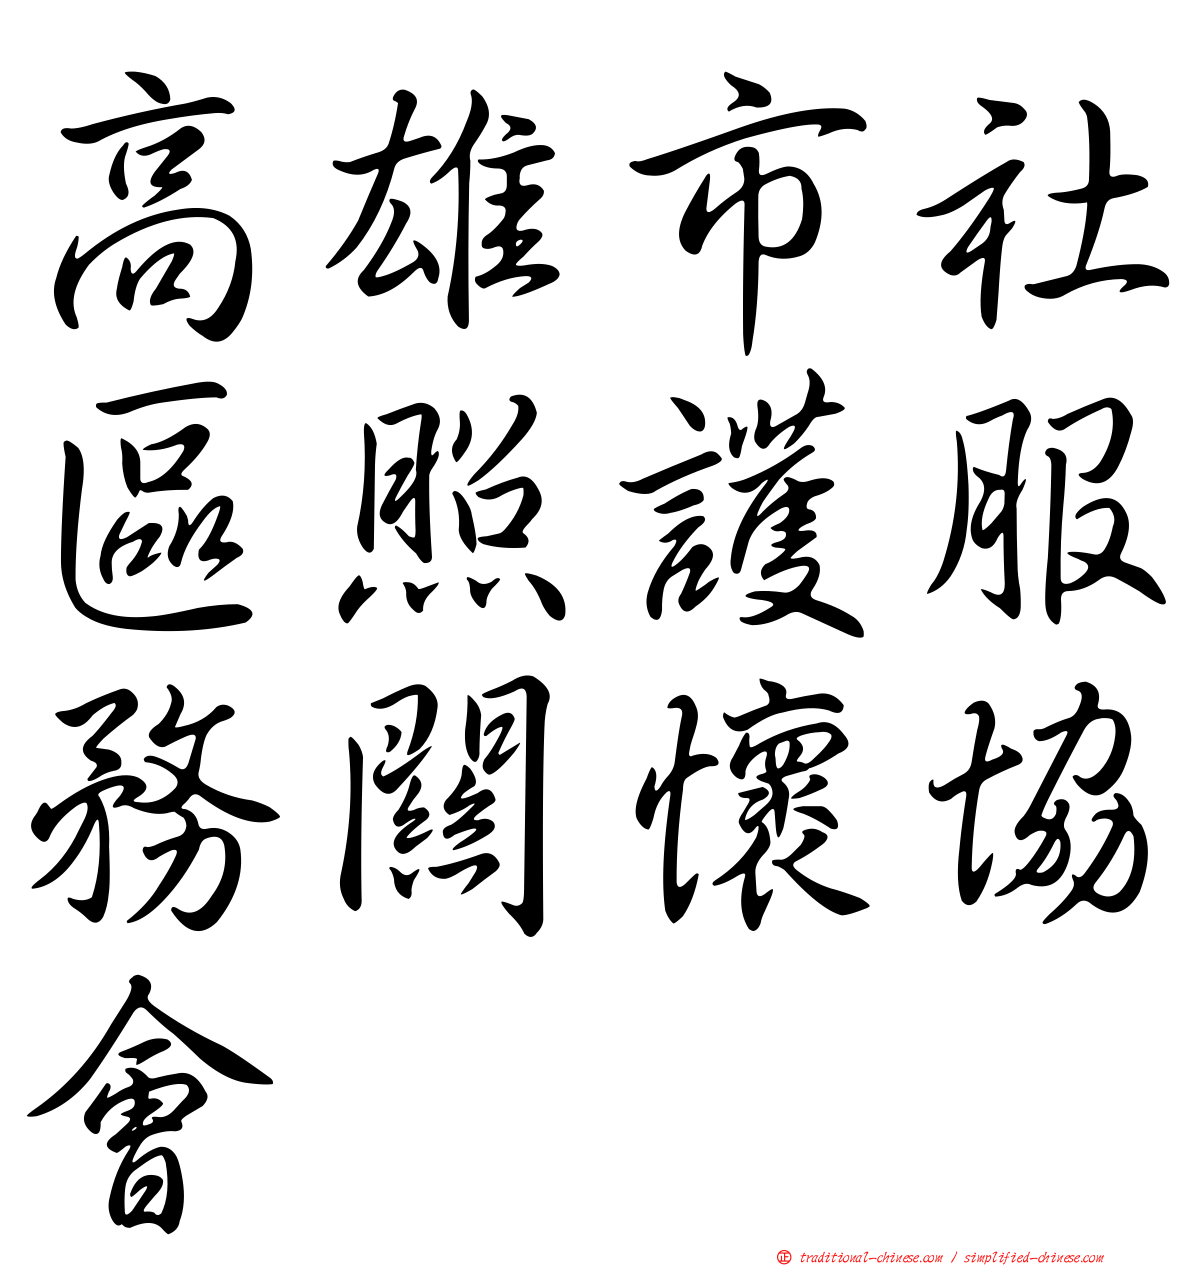 高雄市社
區照護服
務關懷協
會
正 traditional-chinese.com / simplified-chinese.com